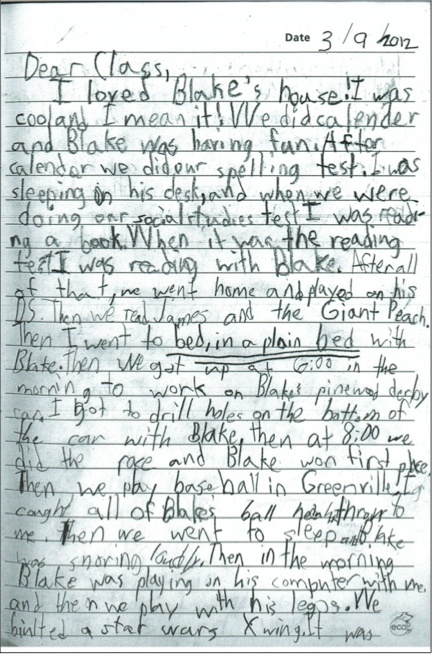 Date 3/9/2012
Dear Class,
I loved Blake's house! I was
cool and I mean it! We did calender
and Blake was having fun. After
calendar we did our spelling test. I was
sleeping on his desk, and when we were
doing our social studies test I was readi-
ng a book. When it was the reading
test I was reading with Blake. After all
of that, we went home and played on his
DS. Then we read James and the Giant Peach.
Then I went to bed, in a plain bed with
Blake. Then we got up at 6:00 in the
morning to work on Blake's pinewood derby
car. I got to drill holes on the bottom of
the car with Blake, then at 8:00 we
did the race and Blake won first place.
Then we play baseball in Greenville. I
caught all of Blake's ball he threw to
me. Then we went to sleep and Blake
was snoring loudly. Then in the morning
Blake was playing on his computer with me,
and then we play with his legos. We
builted a star wars X wing. It was
eco